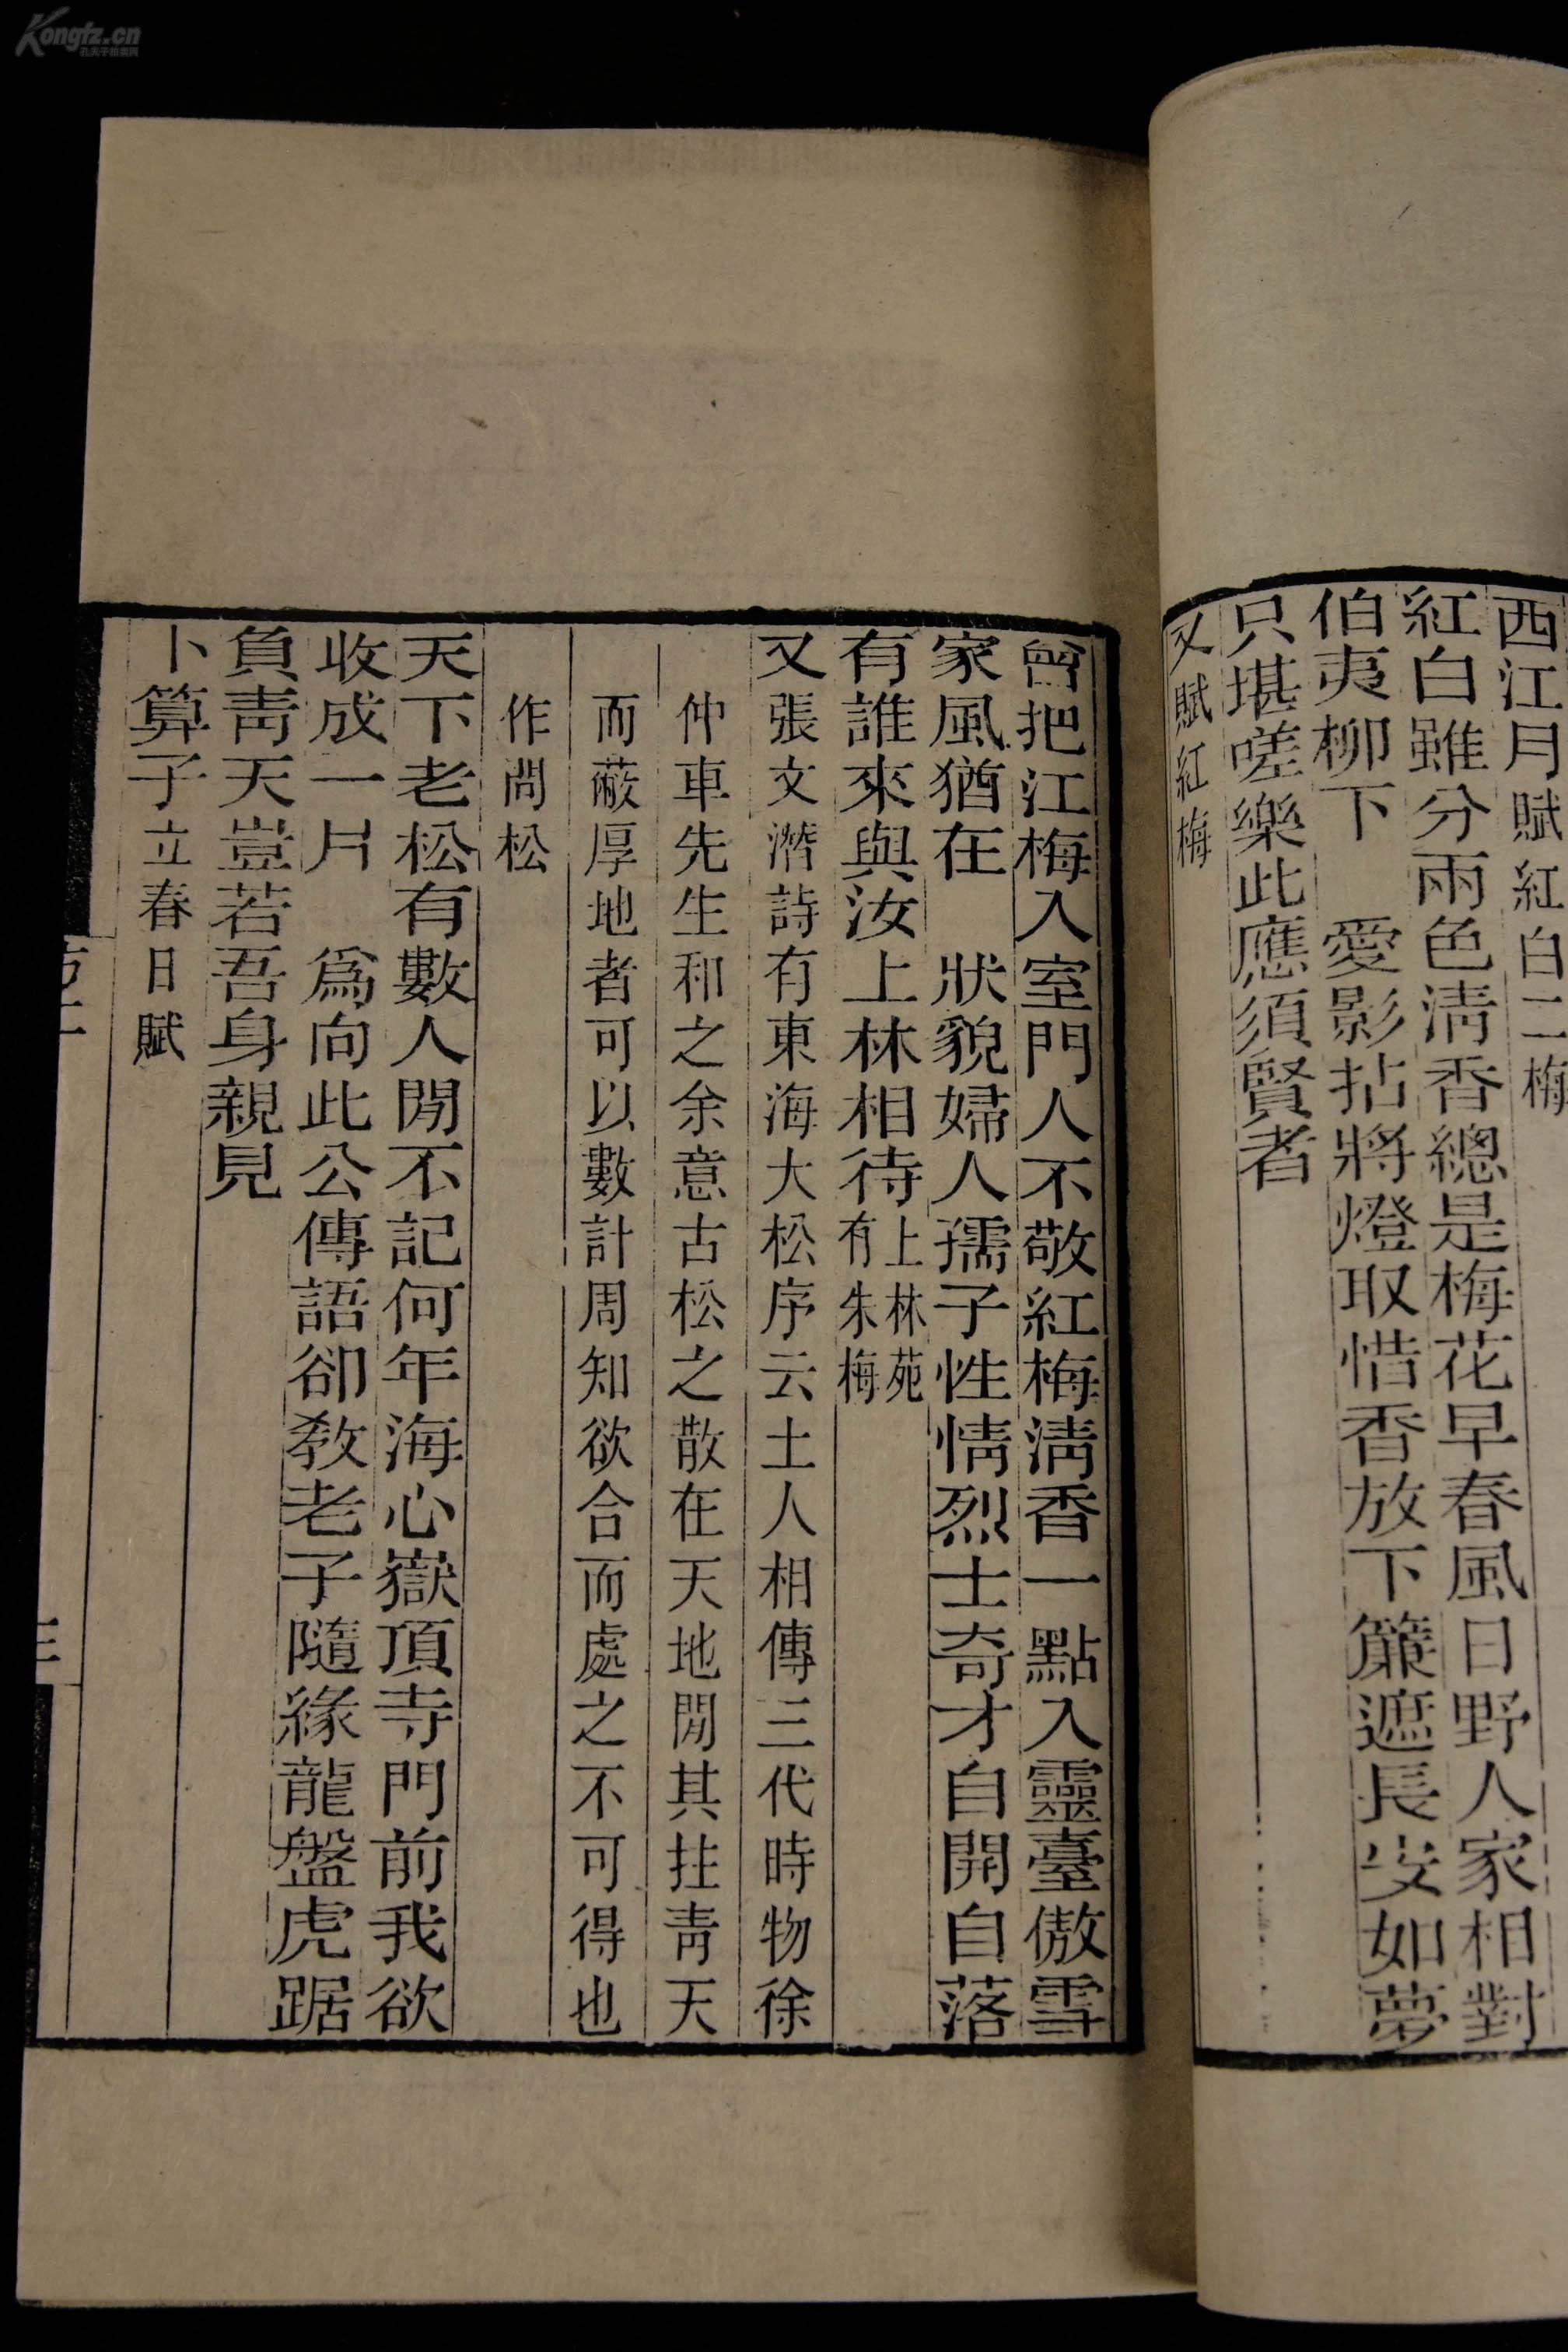 Kongfz.cn
孔夫子拍卖网
西江月賦紅白二梅
紅白雖分兩色清香總是梅花早春風日野人家相對
伯夷柳下　愛影拈將燈取惜香放下簾遮長安如夢
只堪嗟樂此應須賢者
又賦紅梅
曾把江梅入室門人不敬紅梅清香一點入靈臺傲雪
家風猶在　狀貌婦人孺子性情烈士奇才自開自落
有誰來與汝上林相待上林苑有朱梅
又張文潛詩有東海大松序云土人相傳三代時物徐
仲車先生和之余意古松之散在天地閒其拄青天
而蔽厚地者可以數計周知欲合而處之不可得也
作問松
天下老松有數人閒不記何年海心嶽頂寺門前我欲
收成一片　爲向此公傳語卻教老子隨緣龍盤虎踞
負青天豈若吾身親見
卜算子立春日賦
三